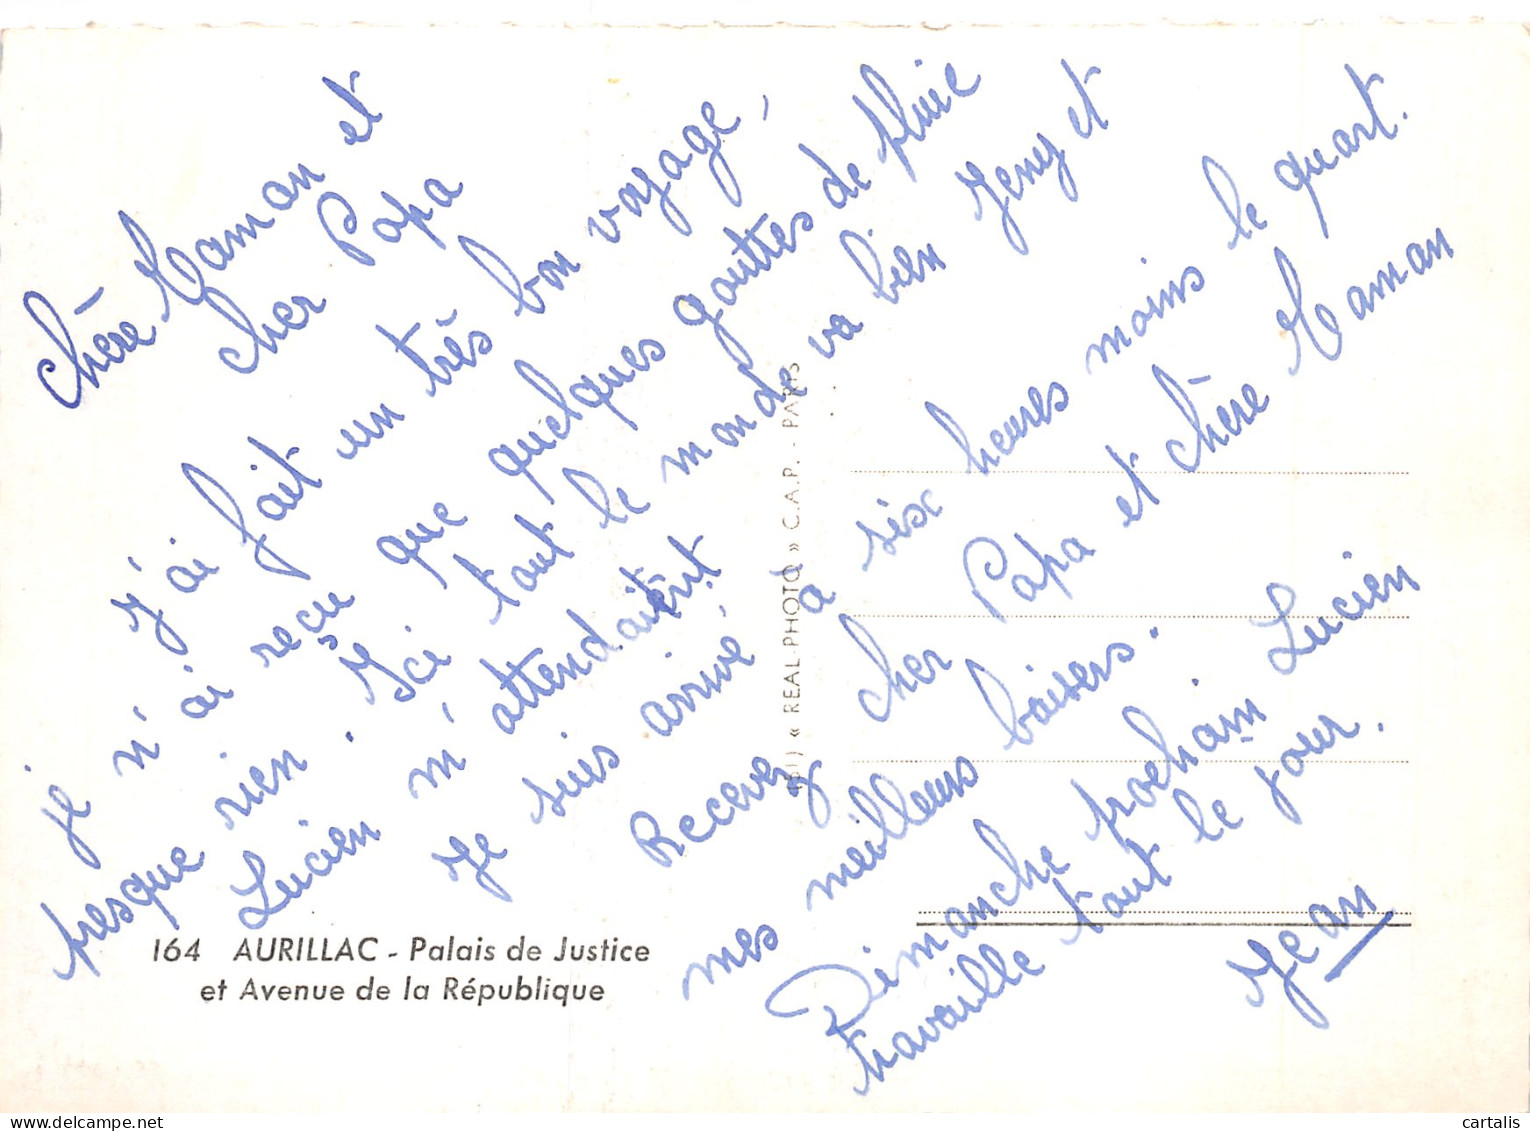 chère Maman et
cher Papa
j'ai fait un très bon voyage,
je n'ai reçu que quelques gouttes de pluie
presque rien. Ici tout le monde va bien Jeny et
Lucien m'attendaient
Je suis arrivé à six heures moins le quart.
Recevez cher Papa et chère Maman
mes meilleurs baisers.
Dimanche prochain Lucien
travaille tout le jour.
Jean
164 AURILLAC - Palais de Justice
et Avenue de la République
« REAL-PHOTO » C.A.P. - PARIS
delcampe.net
cartalis